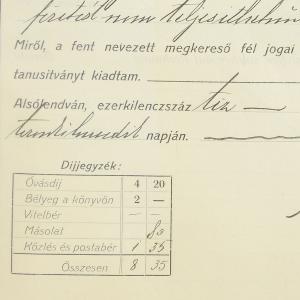 fizetést nem teljesíthetünk
Miről, a fent nevezett megkereső fél jogai
tanusitványt kiadtam.
Alsólendván, ezerkilenczszáz tiz —
napján.
Díjjegyzék:
Óvásdíj 4 20
Bélyeg a könyvön 2 —
Vitelbér — —
Másolat 80
Közlés és postabér 1 35
Összesen 8 35